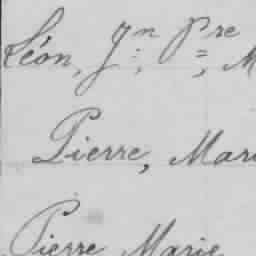 Léon, Jn, Pre, M
Pierre, Mari
Pierre Marie